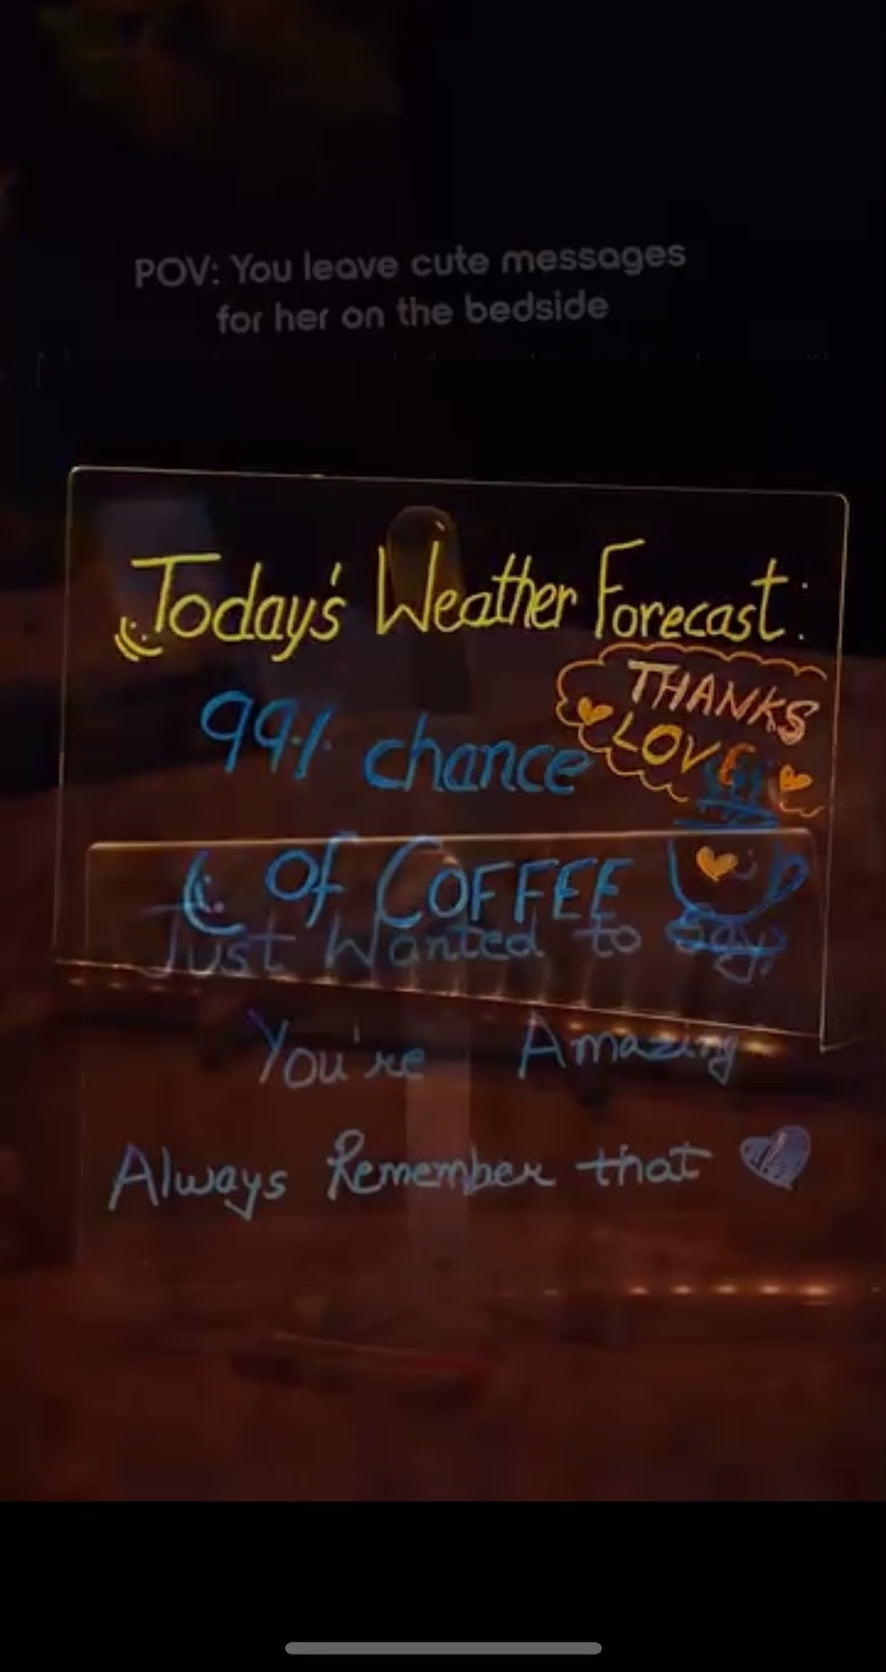 POV: You leave cute messages
for her on the bedside
Today's Weather Forecast:
THANKS
LOVE
99% chance
of COFFEE
Just Wanted to Say,
You're Amazing
Always Remember that